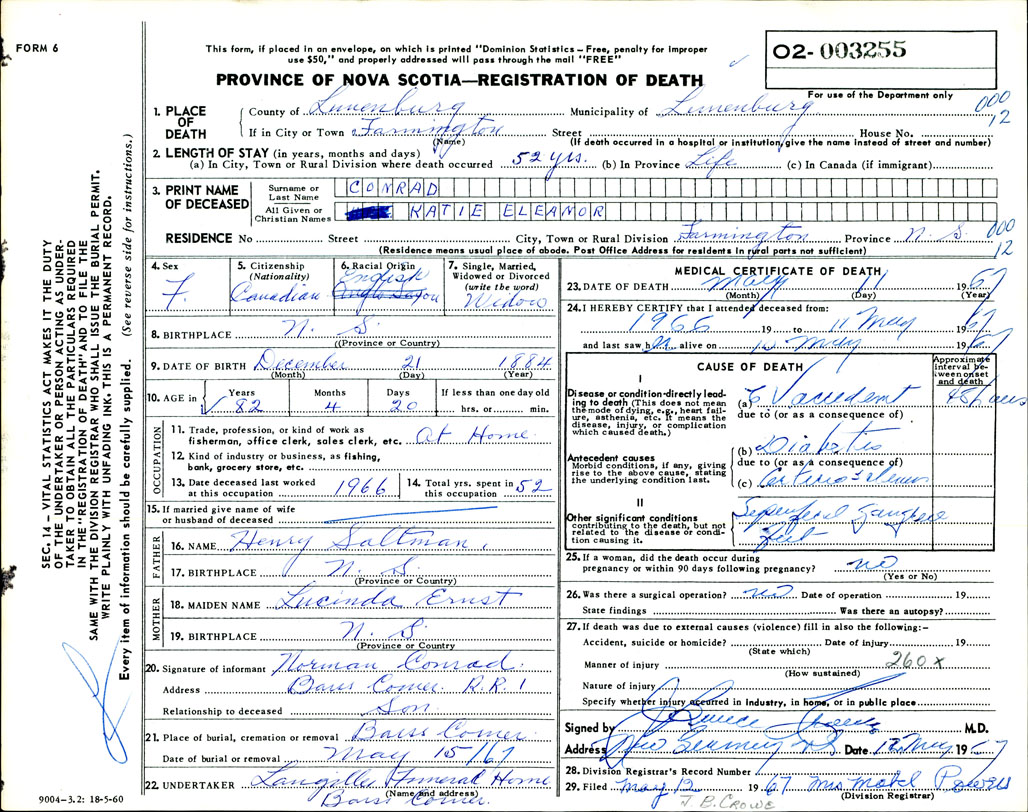 FORM 6
This form, if placed in an envelope, on which is printed "Dominion Statistics – Free, penalty for improper
use $50," and properly addressed will pass through the mail "FREE"
PROVINCE OF NOVA SCOTIA—REGISTRATION OF DEATH
02- 003255
For use of the Department only
000
12
1. PLACE OF DEATH
County of Lunenburg Municipality of Lunenburg
If in City or Town Farmington Street House No.
(Name) (If death occurred in a hospital or institution, give the name instead of street and number)
2. LENGTH OF STAY (in years, months and days)
(a) In City, Town or Rural Division where death occurred 52 yrs. (b) In Province Life (c) In Canada (if immigrant)
3. PRINT NAME OF DECEASED
Surname or Last Name CONRAD
All Given or Christian Names KATIE ELEANOR
RESIDENCE No Street City, Town or Rural Division Farmington Province N. S.
000
12
(Residence means usual place of abode. Post Office Address for residents in rural parts not sufficient)
4. Sex
F.
5. Citizenship
(Nationality)
Canadian
6. Racial Origin
English
Anglo Saxon
7. Single, Married,
Widowed or Divorced
(write the word)
Widow
8. BIRTHPLACE N. S.
(Province or Country)
9. DATE OF BIRTH December 21 1884
(Month) (Day) (Year)
10. AGE in
Years Months Days If less than one day old
82 4 20 hrs. or min.
OCCUPATION
11. Trade, profession, or kind of work as
fisherman, office clerk, sales clerk, etc. At Home
12. Kind of industry or business, as fishing,
bank, grocery store, etc.
13. Date deceased last worked
at this occupation 1966
14. Total yrs. spent in
this occupation 52
15. If married give name of wife
or husband of deceased
FATHER
16. NAME Henry Saltman
17. BIRTHPLACE N. S.
(Province or Country)
MOTHER
18. MAIDEN NAME Lucinda Ernst
19. BIRTHPLACE N. S.
(Province or Country)
20. Signature of informant Norman Conrad
Address Barss Corner R.R. 1
Relationship to deceased Son
21. Place of burial, cremation or removal Barss Corner
Date of burial or removal May 15/67
22. UNDERTAKER Langille Funeral Home
(Name and address)
Barss Corner
9004–3.2: 18-5-60
MEDICAL CERTIFICATE OF DEATH
23. DATE OF DEATH May 11 1967
(Month) (Day) (Year)
24. I HEREBY CERTIFY that I attended deceased from:
1966 19 to 11 May 1967
and last saw h alive on May 1967
CAUSE OF DEATH
Approximate
interval between
onset
and death
I
Disease or condition-directly leading
to death (This does not mean
the mode of dying, e.g., heart failure,
asthenia, etc. It means the
disease, injury, or complication
which caused death.)
(a) C V accident 48 hours
due to (or as a consequence of)
(b) Diabetis
due to (or as a consequence of)
(c)
Antecedent causes
Morbid conditions, if any, giving
rise to the above cause, stating
the underlying condition last.
II
Other significant conditions
contributing to the death, but not
related to the disease or condition
causing it.
Gangrene
Feet
25. If a woman, did the death occur during
pregnancy or within 90 days following pregnancy? no
(Yes or No)
26. Was there a surgical operation? no Date of operation 19
State findings Was there an autopsy?
27. If death was due to external causes (violence) fill in also the following:-
Accident, suicide or homicide? Date of injury 19
(State which)
Manner of injury 260 x
(How sustained)
Nature of injury
Specify whether injury occurred in industry, in home, or in public place
Signed by M.D.
Address New Germany N.S. Date 12 May 1967
28. Division Registrar's Record Number
29. Filed May 1967 Mrs Powers
(Division Registrar)
J. B. CROWE
SEC. 14 – VITAL STATISTICS ACT MAKES IT THE DUTY
OF THE UNDERTAKER OR PERSON ACTING AS UNDERTAKER
TO OBTAIN ALL THE PARTICULARS REQUIRED
IN THE "REGISTRATION OF DEATH" AND TO FILE THE
SAME WITH THE DIVISION REGISTRAR WHO SHALL ISSUE THE BURIAL PERMIT.
WRITE PLAINLY WITH UNFADING INK. THIS IS A PERMANENT RECORD.
Every item of information should be carefully supplied. (See reverse side for instructions.)